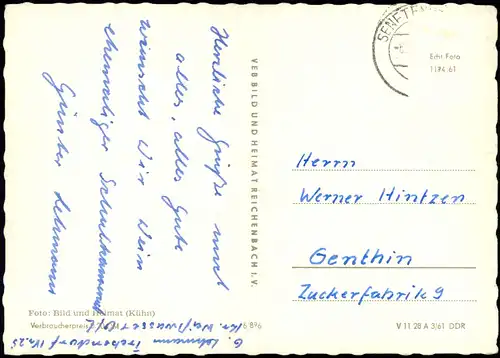 Herzliche Grüße und
alles, alles Gute
wünscht Dir Dein
ehemaliger Schulkamerad
Günter Lehmann
G. Lehmann
Kr. Weißwasser O/L
VEB BILD UND HEIMAT REICHENBACH I. V.
SENFTEN
Echt Foto
1194 61
Herrn
Werner Hintzen
Genthin
Zuckerfabrik 9
Foto: Bild und Heimat (Kühn)
Verbraucherpreis
V 11 28 A 3/61 DDR